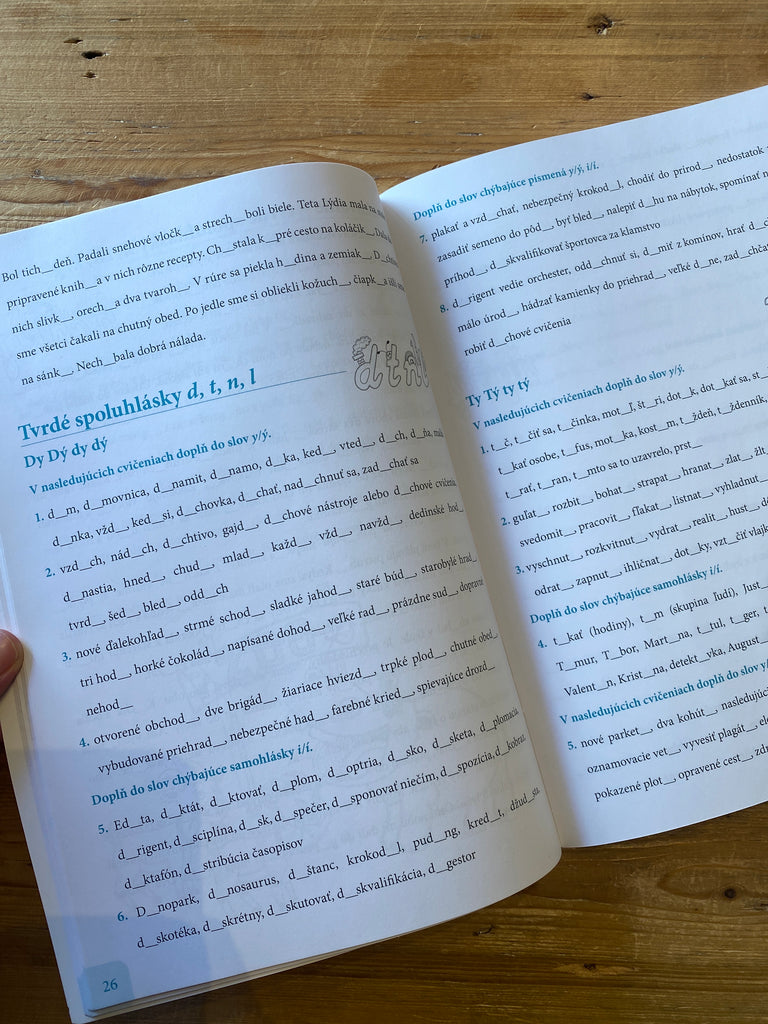 Bol tich__deň. Padali snehové vločk__a strech__boli biele. Teta Lýdia mala na
pripravené knih__a v nich rôzne recepty. Ch__stala k__pré cesto na koláčik__.
nich slivk__, orech__a dva tvaroh__. V rúre sa piekla h__dina a zemiak__.
sme všetci čakali na chutný obed. Po jedle sme si obliekli kožuch__, čiapk__a išli
na sánk__. Nech__bala dobrá nálada.
Tvrdé spoluhlásky d, t, n, l
d t n l
Dy Dý dy dý
V nasledujúcich cvičeniach doplň do slov y/ý.
1. d__m, d__movnica, d__namit, d__namo, d__ka, ked__, vted__, d__ch, d__ňa,
d__nka, vžd__, ked__si, d__chovka, d__chať, nad__chnuť sa, zad__chať sa
2. vzd__ch, nád__ch, d__chtivo, gajd__, d__chové nástroje alebo d__chové cvičenia,
d__nastia, hned__, chud__, mlad__, každ__, vžd__, navžd__, dedinské hod__,
tvrd__, šed__, bled__, odd__ch
3. nové ďalekohľad__, strmé schod__, sladké jahod__, staré búd__, starobylé hrad__,
tri hod__, horké čokolád__, napísané dohod__, veľké rad__, prázdne sud__, dopravné
nehod__
4. otvorené obchod__, dve brigád__, žiariace hviezd__, trpké plod__, chutné obed__,
vybudované priehrad__, nebezpečné had__, farebné kried__, spievajúce drozd__
Doplň do slov chýbajúce samohlásky i/í.
5. Ed__ta, d__ktát, d__ktovať, d__plom, d__optria, d__sko, d__sketa, d__plomacia,
d__rigent, d__sciplína, d__sk, d__spečer, d__sponovať niečím, d__spozícia, d__kobraz,
d__ktafón, d__stribúcia časopisov
6. D__nopark, d__nosaurus, d__štanc, krokod__l, pud__ng, kred__t, džud__sta,
d__skotéka, d__skrétny, d__skutovať, d__skvalifikácia, d__gestor
26
Doplň do slov chýbajúce písmená y/ý, i/í.
7. plakať a vzd__chať, nebezpečný krokod__l, chodiť do prírod__, nedostatok
zasadiť semeno do pôd__, byť bled__, nalepiť d__hu na nábytok, spomínať
príhod__, d__skvalifikovať športovca za klamstvo
8. d__rigent vedie orchester, odd__chnuť si, d__miť z komínov, hrať
málo úrod__, hádzať kamienky do priehrad__, veľké d__ne,
robiť d__chové cvičenia
Ty Tý ty tý
V nasledujúcich cvičeniach doplň do slov y/ý.
1. t__č, t__čiť sa, t__činka, mot__ľ, št__ri, dot__k, dot__kať sa, st__
t__kať osobe, t__fus, mot__ka, kost__m, t__ždeň, t__ždenník,
t__rať, t__ran, t__mto sa to uzavrelo, prst__
2. guľat__, rozbit__, bohat__, strapat__, hranat__, zlat__, žlt__
svedomit__, pracovit__, fľakat__, listnat__, vyhladnut__
3. vyschnut__, rozkvitnut__, vydrat__, realit__, hust__,
odrat__, zapnut__, ihličnat__, dot__ky, vzt__čiť vlajk
Doplň do slov chýbajúce samohlásky i/í.
4. t__kať (hodiny), t__m (skupina ľudí), Just__
T__mur, T__bor, Mart__na, t__tul, t__ger,
Valent__n, Krist__na, detekt__vka, August__
V nasledujúcich cvičeniach doplň do slov
5. nové parket__, dva kohút__, nasledujúc
oznamovacie vet__, vyvesiť plagát__,
pokazené plot__, opravené cest__,